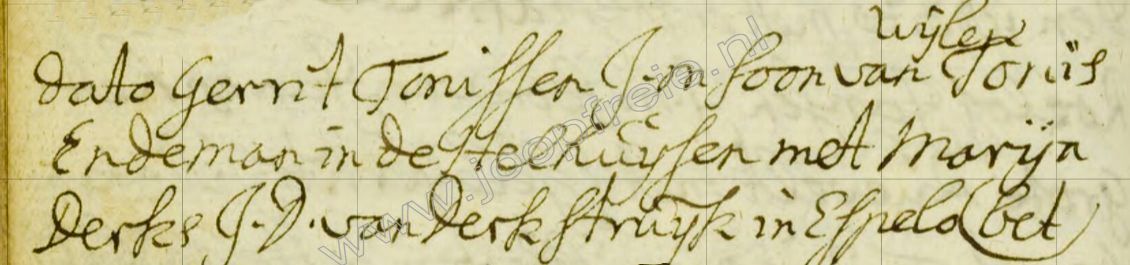 wijlen
dato Gerrit Tonissen J.m soon van Tonis
Endeman in de steehuijsen met Marija
Derks J.D. van Derk struijk in Espelo (bet)
www.joopfreie.nl